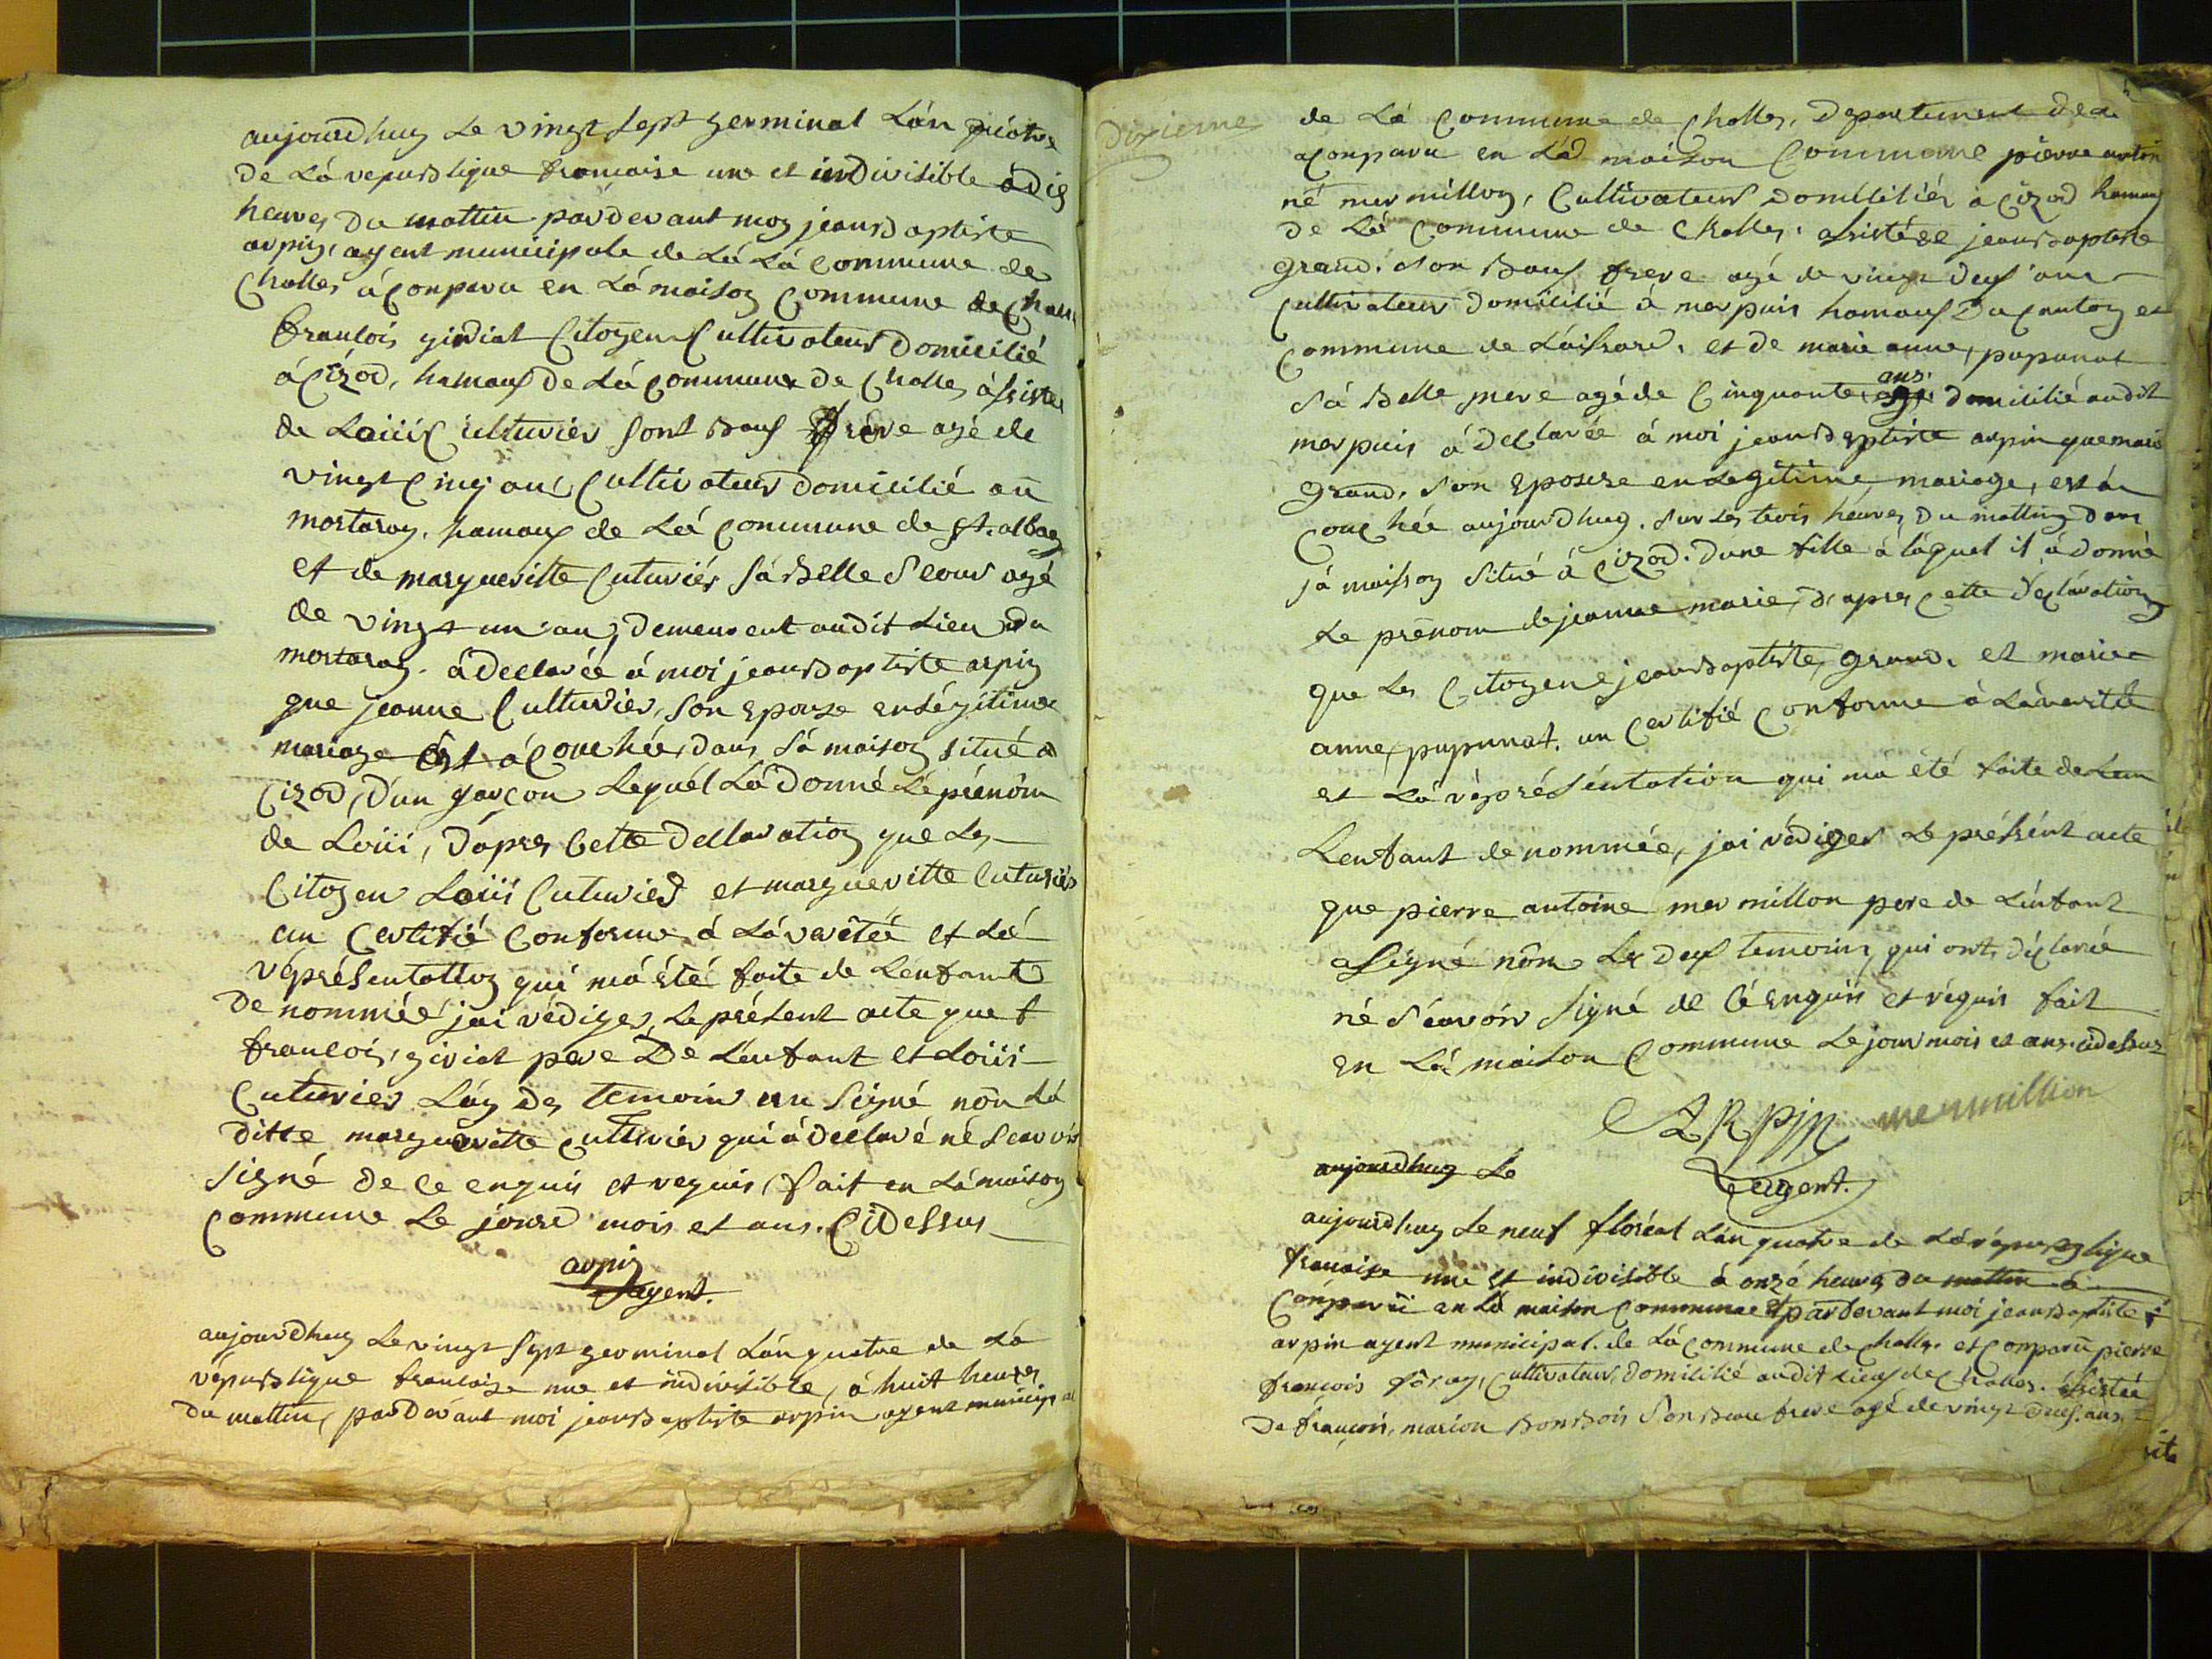 aujourdhuy Le vingt sept germinal Lán quátre
de Lá republique francaise une et indivisible á dix
heures du mattin pardevant moy jean baptiste
arpin, agent municipale de Lá Lá commune de
Challes á Conparu en Lá maison Commune de Challes
francois giriat Citoyen Cultivateur domicilié
á Cizod, hamaux de Lá Commune de Challes ássisté
de Loüis Cuturier sont baux frére agé de
vingt Cinq ans Cultivateur domicilié au
mortaray, hamaux de Lá Commune de st. alban
et de margueritte Cuturiér sá belle seour agé
de vingt un ans demeurent audit Lieu du
mortaray. á declarée á moi jean baptiste arpin
que jeanne Cuturier, son epouse en Légitime
mariage est á Couchée, dans sá maison situé á
Cizod, d'un garcon Lequél Lá donné Lé prénóm
de Loüi, dápres Cette declaration que Les
Citoyen Loüis Cuturier et margueritte Cuturiér
cin Certifié Conforme á Lá verétée et Lá
réprésentation qui má été faite de Lenfant
denommée jai rédiger Le présent acte que
francois, giriat pere de Lenfant et Loüis
Cuturier Lúy des temoin un signé nón Lá
ditte margueritte Cuturier qui á declaré né scavoir
signé de ce enquis et requis, fait en Lá maison
Commune Le jour mois et ans. Cidessus
arpin
agent.
aujourdhuy Le vingt sept germinal Lán quatre de Lá
républigue francaise une et indivisible, á huit heures
du mattin, pardevant moi jean baptiste arpin agent municipal
dixieme
de Lá Commune de Challes, departement de
a Conparu en Lád maison Commune pierre antoi
né mermillon, Cultivateur domicilié á Cizod hamaux
de Lá Commune de Challes, assisté de jean baptiste
grand, son baux frere agé de vingt deux ans
Cultivateur domicilié á merpuis hamaux du Canton et
Commune de Láissard, et de marie anne, pupunat
sá belle mere agé de Cinquante ans domicilié audit
merpuis á declarée á moi jean baptiste arpin que marie
grand, son epouse en Legitime mariage, est á
Couchée aujourdhuy. sur Les trois heures du mattin dans
sá maison situé á Cizod. dune fille á láquel il á donné
Le prénom de jeanne marie, dápres Cette déclaration
que Les Citoyen jean baptiste, grand, et marie
anne, pupunat. un Certifié Conforme á Láverité
et Lá réprésentation qui má été faite de Len
Lenfant denommée, jai rédiger Le présént acte
que pierre antoine mermillon pere de Lénfant
a signé nón Les deux temoins, qui ont déclarée
né scavoir signé de cé enquis et réquis fait
en Lá maison Commune Le jour mois et ans. cidessus
ARPIN mermillion
Le agent.
aujourdhuy Le
aujourdhuy Le neuf floréal Lán quatre de Lá républigue
francaise une et indivisible á onzé heures du mattin á
Conparü en Lá maison Commune et pardevant moi jean baptiste
arpin agent municipal. de Lá Commune de Challes. et Conparü pierre
francois Cultivateur, domicilié audit Lieux de Challes. ássistée
de francois, marion bonbois son beau frere agé de vingt deux ans